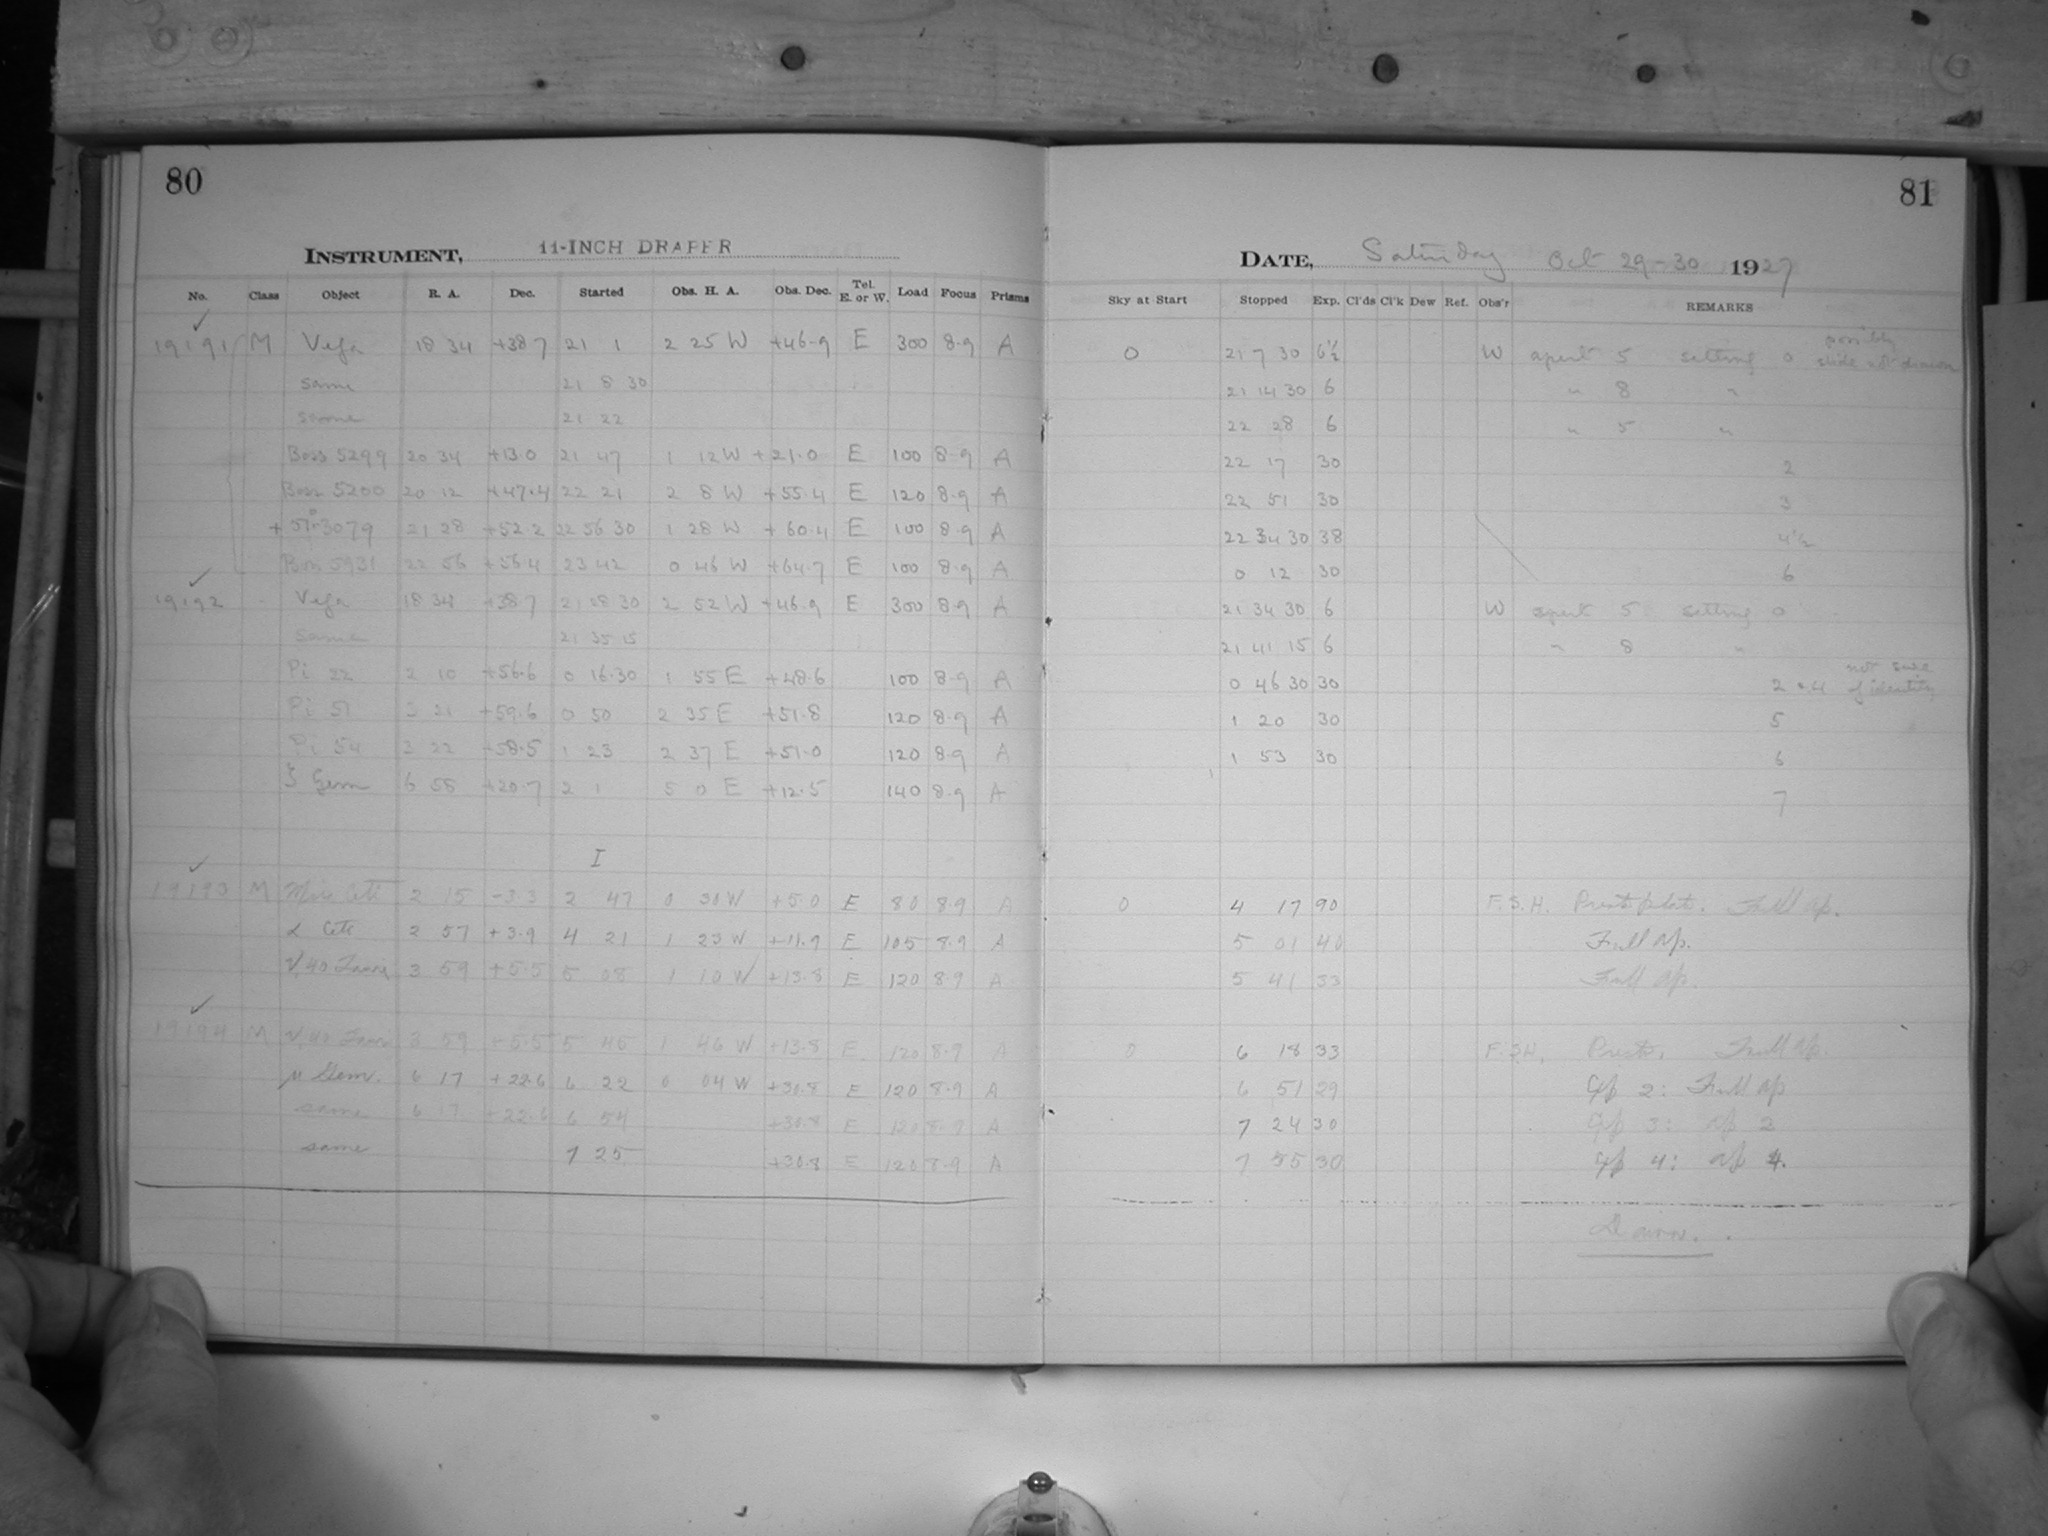 80
INSTRUMENT, 11-INCH DRAPER
No. Class Object R. A. Dec. Started Obs. H. A. Obs. Dec. Tel. E. or W. Load Focus Prisms
19191 M Vega 18 34 +38 7 21 1 2 25 W +46.9 E 300 8.9 A
same 21 8 30
same 21 22
Boss 5299 20 34 +13.0 21 47 1 12 W +21.0 E 100 8.9 A
Boss 5200 20 12 +47.4 22 21 2 8 W +55.4 E 120 8.9 A
+51°.3079 21 28 +52.2 22 56 30 1 28 W +60.4 E 100 8.9 A
Boss 5931 22 56 +56.4 23 42 0 46 W +64.7 E 100 8.9 A
19192 Vega 18 34 +38.7 21 28 30 2 52 W +46.9 E 300 8.9 A
same 21 35 15
Pi 22 2 10 +56.6 0 16.30 1 55 E +48.6 100 8.9 A
Pi 51 3 21 +59.6 0 50 2 35 E +51.8 120 8.9 A
Pi 54 3 22 +58.5 1 23 2 37 E +51.0 120 8.9 A
ζ Gem 6 58 +20.7 2 1 5 0 E +12.5 140 8.9 A
I
19193 M Mira Ceti 2 15 -3.3 2 47 0 30 W +5.0 E 80 8.9 A
α Ceti 2 57 +3.9 4 21 1 23 W +11.9 E 105 8.9 A
3 59 +5.5 5 08 1 10 W +13.8 E 120 8.9 A
19194 M 3 59 +5.5 5 45 1 46 W +13.8 E 120 8.9 A
μ Gem. 6 17 +22.6 6 22 0 04 W +30.8 E 120 8.9 A
same 6 17 +22.6 6 54 +30.8 E 120 8.9 A
same 7 25 +30.8 E 120 8.9 A
81
DATE, Saturday Oct 29-30 1927
Sky at Start Stopped Exp. Cl'ds Cl'k Dew Ref. Obs'r REMARKS
0 21 7 30 6½ W apert 5 setting 0 possibly slide not drawn
21 14 30 6 " 8 "
22 28 6 " 5 "
22 17 30 2
22 51 30 3
22 34 30 38 4½
0 12 30 6
21 34 30 6 W apert 5 setting 0
21 41 15 6 " 8 "
0 46 30 30 2 not sure of identity
1 20 30 5
1 53 30 6
7
0 4 17 90 F.S.H. Full ap.
5 01 40 Full ap.
5 41 33 Full ap.
0 6 18 33 F.S.H. Full ap.
6 51 29 2: Full ap
7 24 30 3: ap
7 55 30 4: ap 4.
Dawn.